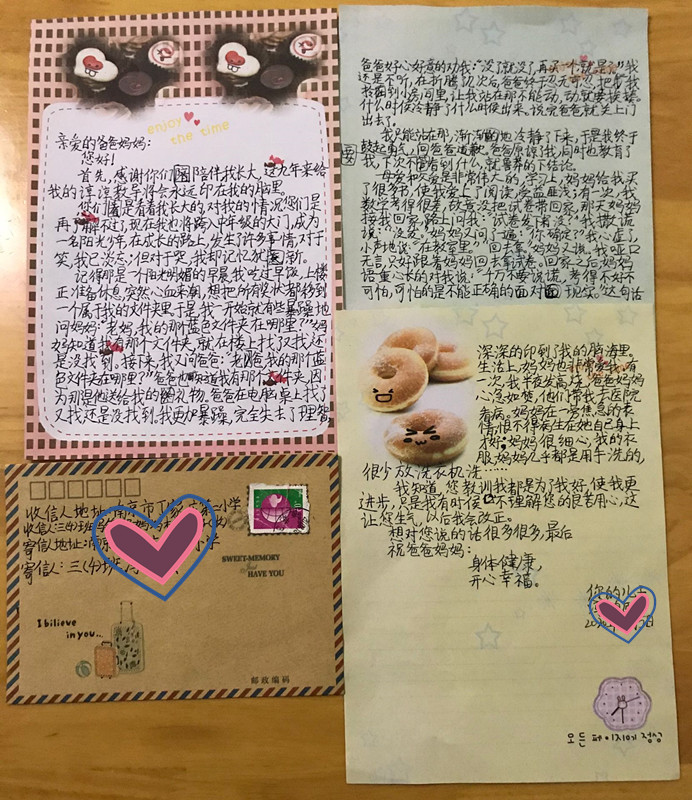 enjoy
the time
亲爱的爸爸妈妈:
您好!
首先,感谢你们陪伴我长大,这九年来给
我的谆谆教导将会永远印在我的脑里。
您们是看着我长大的,对我的情况您们是
再了解不过了,现在我也将跨入中年级的大门,成为
一名阳光少年,在成长的路上,发生了许多事情,对于
笑,我却淡忘;但对于哭,我却记忆犹新。
记得那是一个阳光明媚的早晨,我吃过早饭,上楼
正准备休息,突然心血来潮,想把所有奖状都移到
一个属于我的文件夹里,于是我一开始就有些暴躁地
问妈妈:“老妈,我的那蓝色文件夹在哪里?”妈
妈知道我有那个文件夹,就在楼上找了又找还
是没找到。接下来,我又问爸爸:“老爸我的那个蓝
色文件夹在哪里?”爸爸也知道我有那个文件夹,因
为那是他送给我的礼物。爸爸在电脑桌上找了
又找还是没找到,我更加暴躁,完全失去了理智,
爸爸好心好意的劝我:“没了就没了,再买一个就是了。”我
还是不听,在折腾几次后,爸爸终于忍无可忍,把
我关到小房间里,让我站在那不能动,动就要挨揍。
什么时候冷静了什么时候出来。说完爸爸就关上门
出去了。
我只能站在那,渐渐的地冷静了下来,于是我终于
鼓起勇气,向爸爸道歉,爸爸原谅了我,同时也教育了
我,下次不能看到什么,就冒昧的下结论。
母爱和父爱是非常伟大的,学习上,妈妈给我买
了很多书,使我爱上了阅读,受益匪浅;有一次,我
数学考得很差,故意没把试卷带回家,那天妈妈
接我回家,路上问我:“试卷带了没?”我撒谎
说:“没发。”妈妈又问了遍:“你确定?”我心虚了,
小声地说:“在教室里。”“回去拿。”妈妈又说,我哑口
无言,只好跟着妈妈回去拿试卷。回家之后,妈妈
语重心长的对我说:“千万不要说谎,考得不好不
可怕,可怕的是不能正确的面对现实。”这句话
深深的印到了我的脑海里。
生活上,妈妈也非常爱我,有
一次,我半夜发高烧,爸爸妈妈
心急如焚,他们带我去医院
看病。妈妈在一旁焦急的表
情,恨不得病生在她自己身上
才好;妈妈很细心,我的衣
服,妈妈几乎都是用手洗的,
很少放洗衣机洗……
我知道,您教训我都是为了我好,使我更
进步,只是我有时候不理解您的良苦用心,这
让您生气,以后我会改正。
想对您说的话很多很多,最后
祝爸爸妈妈:
身体健康,
开心幸福。
你的儿子
모든 페이지에 정성
收信人地址:南京市
小学
收信人:三(4)班
寄信地址:南京
小学
寄信人:三(4)班
SWEET-MEMORY
Just
HAVE YOU
I bilieve
in you...
邮政编码